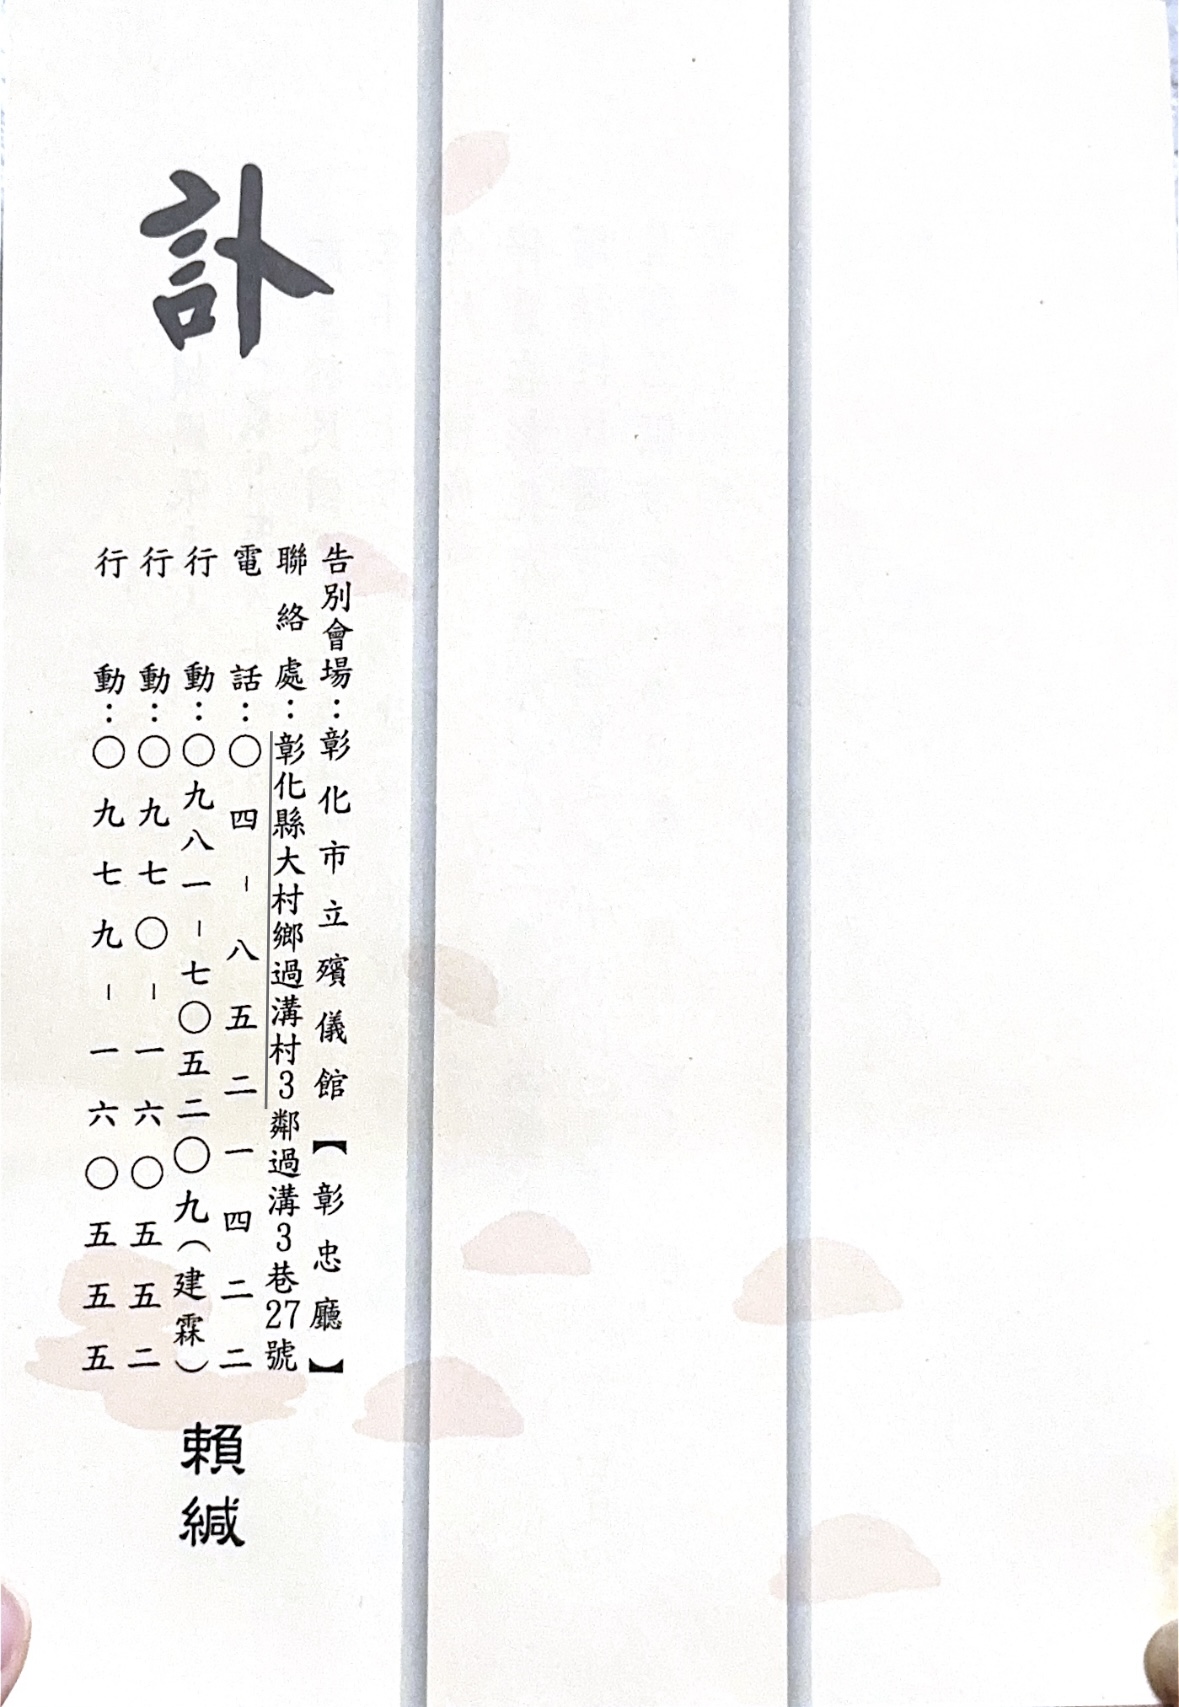 訃
告別會場：彰化市立殯儀館【彰忠廳】
聯絡處：彰化縣大村鄉過溝村3鄰過溝3巷27號
電話：〇四-八五二一四二二
行動：〇九八一-七〇五二〇九（建霖）
行動：〇九七〇-一六〇五五二
行動：〇九七九-一六〇五五五
賴緘